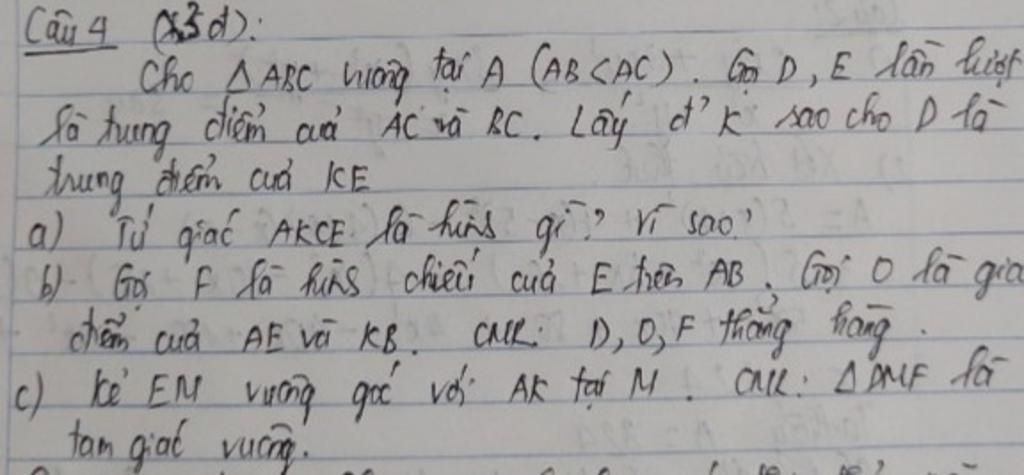 Câu 4 (3đ):
Cho △ABC vuông tại A (AB<AC). Gọi D, E lần lượt
là trung điểm của AC và BC. Lấy đ' K sao cho D là
trung điểm của KE
a) Tứ giác AKCE là hình gì? Vì sao?
b) Gọi F là hình chiếu của E trên AB. Gọi O là gia
điểm của AE và KB. CMR: D, O, F thẳng hàng.
c) Kẻ EM vuông góc với AK tại M. CMR: △DMF là
tam giác vuông.